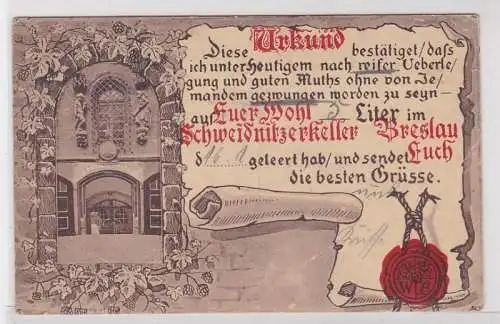 Diese Urkund bestätiget/daß
ich unter Heutigem nach reifer Ueberle-
gung und guten Muths ohne von Je-
mandem gezwungen worden zu seyn-
auf Euer Wohl 5 Liter im
Schweidnitzer Keller Breslau
d 16.1 geleert hab/und sende Euch
die besten Grüsse.